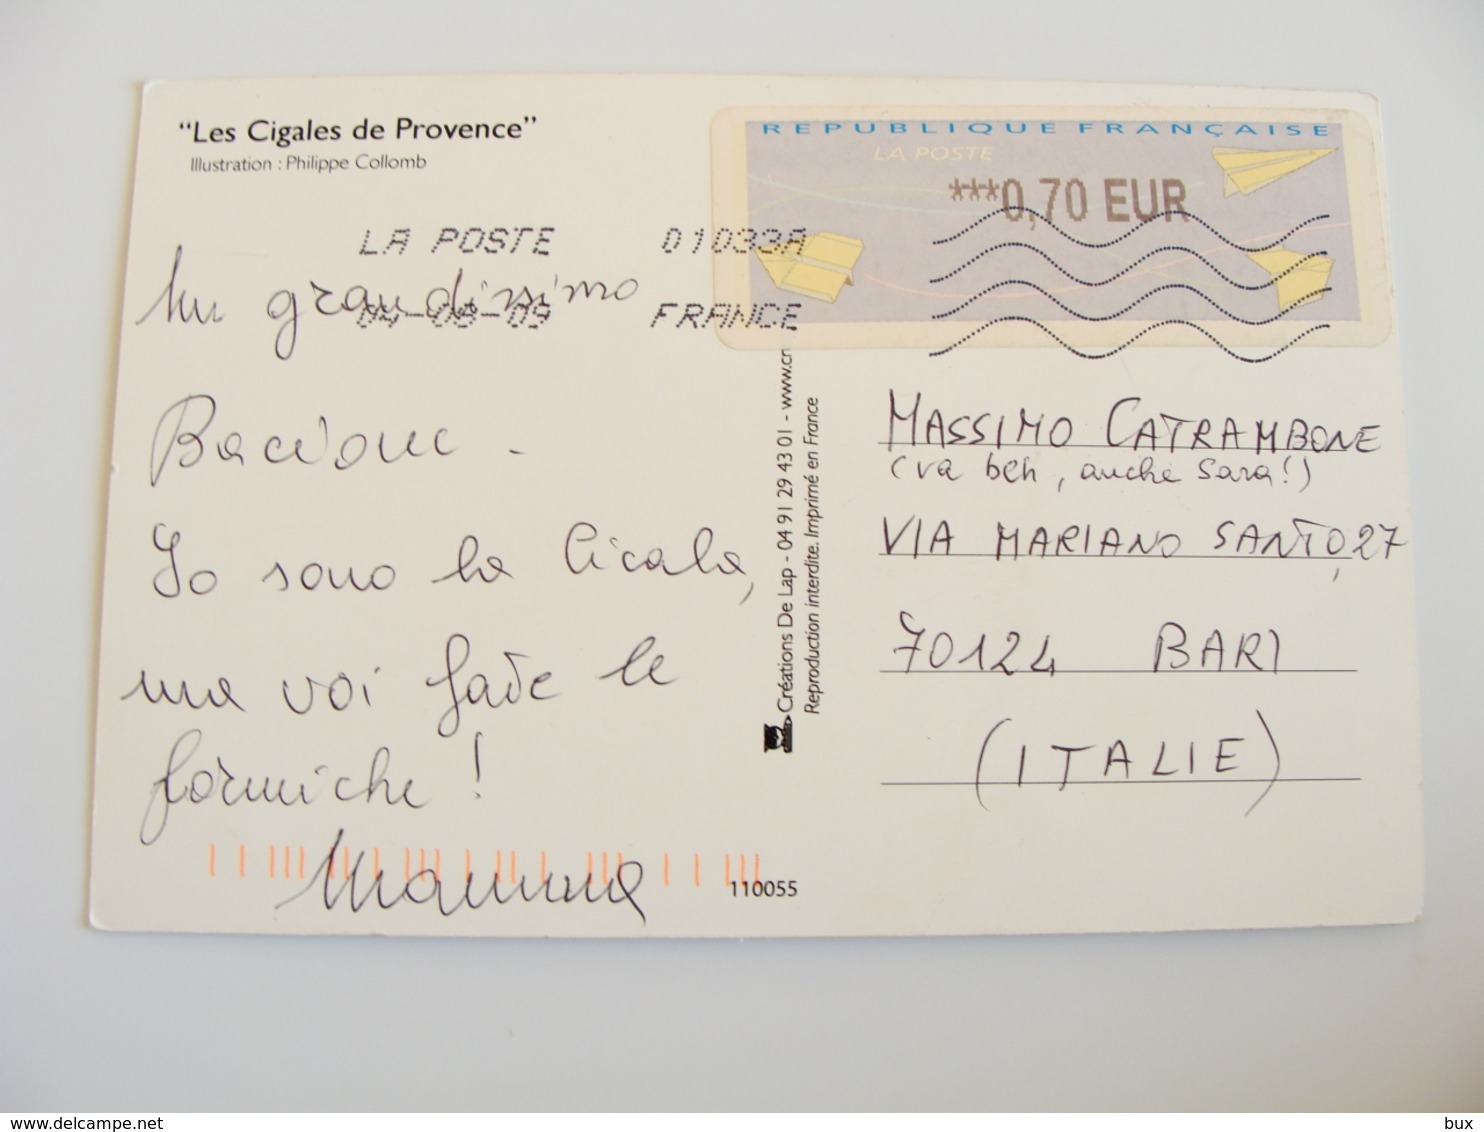 "Les Cigales de Provence"
Illustration : Philippe Collomb
REPUBLIQUE FRANÇAISE
LA POSTE
***0,70 EUR
LA POSTE 01033A
04-08-09 FRANCE
Un grandissimo
Bacione -
Io sono la Cicala,
ma voi fate le
formiche!
Mamma
110055
Créations De Lap - 04 91 29 43 01 - www.cr
Reproduction interdite. Imprimé en France
MASSIMO CATRAMBONE
(va beh, anche Sara!)
VIA MARIANO SANTO, 27
70124 BARI
(ITALIE)
www.delcampe.net
bux